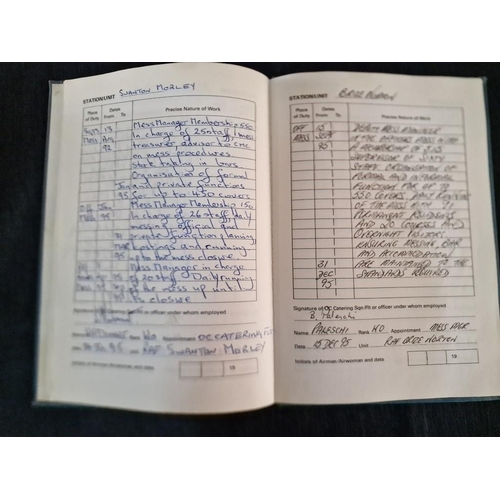 STATION/UNIT SWANTON MORLEY
Place of Duty
Dates
From To
Precise Nature of Work
Sgts 13 Mess Manager Membership 550
Mess In charge of 25 staff, mess
treasurer, advisor to CMC
92 on mess procedures
stock taking in bars
Organisation of formal
Jan and private functions
95 for up to 450 covers
Off Jan Mess Manager Membership 150
Mess 95 In charge of 26 staff, daily
messing, official and
private function planning
MAR costings and ensuing
95 up to the mess closure
Mess Manager in charge
of 20 staff Daily running
of the mess up until
closure
Signature of OC Catering Sqn/Flt or officer under whom employed
Rank WO Appointment OC CATERING
Date 95 Unit RAF SWANTON MORLEY
Initials of Airman/Airwoman and date
19
STATION/UNIT BRIZE NORTON
Place of Duty
Dates
From To
Precise Nature of Work
OFF 15 DEPUTY MESS MANAGER
MESS IN THE OFFICERS MESS WITH
95 A MEMBERSHIP OF
SUPERVISOR OF DUTY
STAFF, ORGANISATION OF
FORMAL AND INFORMAL
FUNCTIONS FOR UP TO
550 COVERS, DAILY RUNNING
OF THE MESS WITH
PERMANENT RESIDENTS
AND 200 COURSES AND
OVERNIGHT VISITORS.
ENSURING MESSING, BAR
AND ACCOMMODATION
31 ARE MAINTAINED TO THE
DEC STANDARDS REQUIRED
95
Signature of OC Catering Sqn/Flt or officer under whom employed
Name PALESCHI Rank WO Appointment MESS MGR
Date 15 DEC 95 Unit RAF BRIZE NORTON
Initials of Airman/Airwoman and date
19